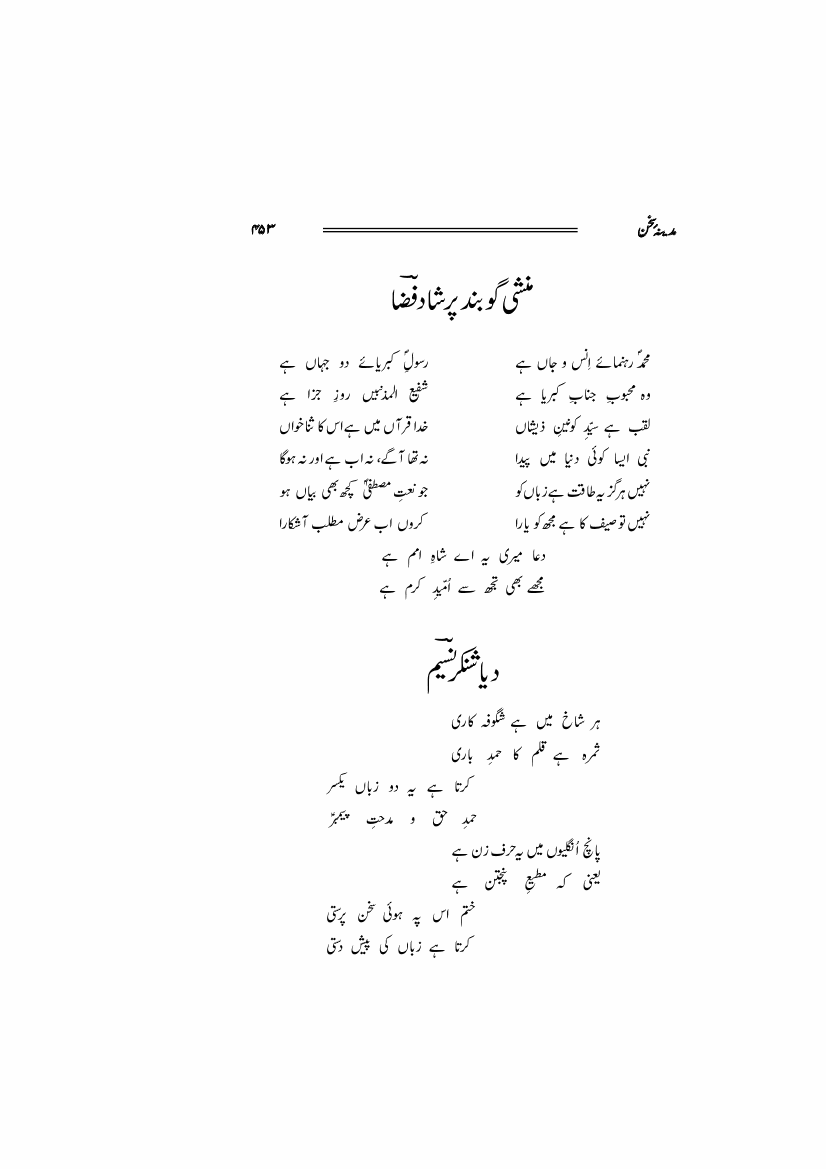 مدینۂ سخن ۴۵۳
منشی گوبند پرشاد فضاؔ
محمدؐ رہنمائے اِنس و جاں ہے رسولِؐ کبریائے دو جہاں ہے
وہ محبوبِ جنابِ کبریا ہے شفیع المذنبیں روزِ جزا ہے
لقب ہے سیّدِ کونینِ ذیشاں خدا قرآں میں ہے اس کا ثناخواں
نبی ایسا کوئی دنیا میں پیدا نہ تھا آگے، نہ اب ہے اور نہ ہوگا
نہیں ہرگز یہ طاقت ہے زباں کو جو نعتِ مصطفیٰؐ کچھ بھی بیاں ہو
نہیں توصیف کا ہے مجھ کو یارا کروں اب عرض مطلب آشکارا
دعا میری یہ اے شاہِ امم ہے
مجھے بھی تجھ سے اُمّیدِ کرم ہے
دیا شنکر نسیمؔ
ہر شاخ میں ہے شگوفہ کاری
ثمرہ ہے قلم کا حمدِ باری
کرتا ہے یہ دو زباں یکسر
حمدِ حق و مدحتِ پیمبرؐ
پانچ اُنگلیوں میں یہ حرف زن ہے
یعنی کہ مطیعِ پنجتن ہے
ختم اس پہ ہوئی سخن پرستی
کرتا ہے زباں کی پیش دستی